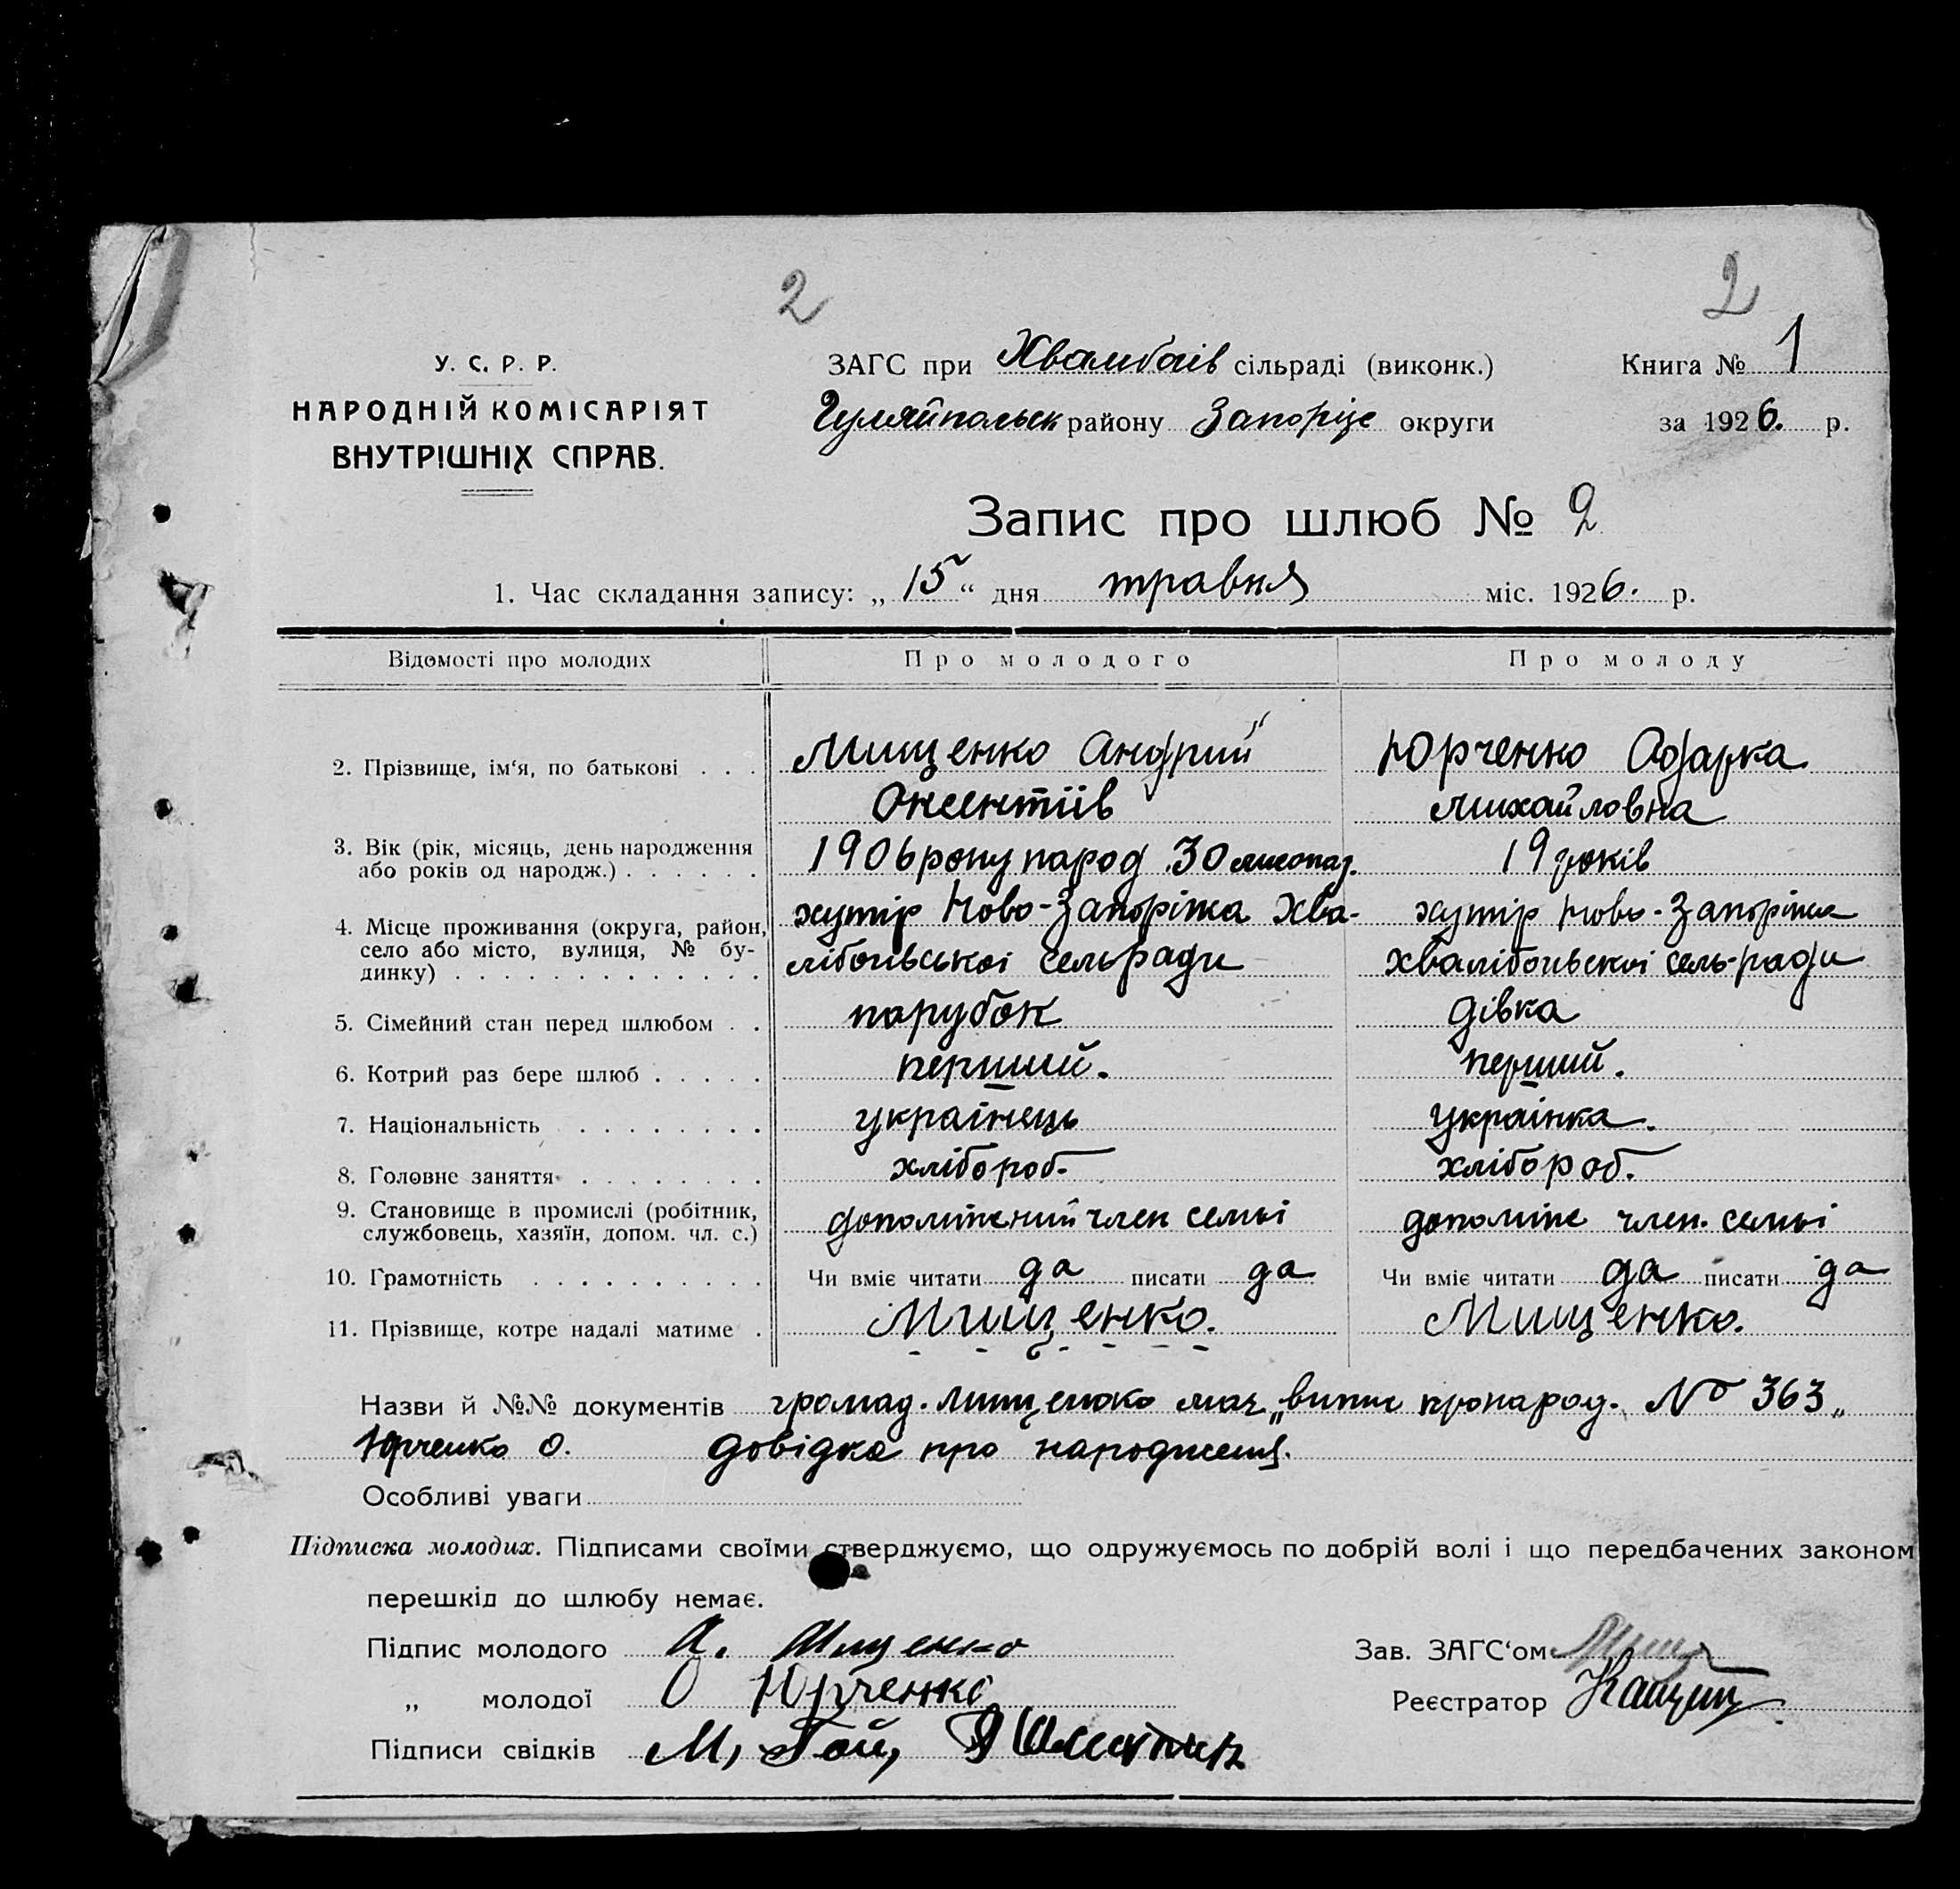 2 2
У. С. Р. Р.
НАРОДНІЙ КОМІСАРІЯТ
ВНУТРІШНІХ СПРАВ.
ЗАГС при сільраді (виконк.) Книга № 1
Гуляйпольськ району Запорізь округи за 1926. р.
Запис про шлюб № 2
1. Час складання запису: „ 15 “ дня травня міс. 1926. р.
Відомості про молодих Про молодого Про молоду
2. Прізвище, ім‘я, по батькові . . . Мищенко Андрий Юрченко Одарка
Оксентіїв Михайловна
3. Вік (рік, місяць, день народження
або років од народж.) . . . . . . 1906 року народ 30 листопад. 19 років
4. Місце проживання (округа, район, хутір Ново-Запоріжка Хва- хутір Ново-Запоріжка
село або місто, вулиця, № бу-
динку) . . . . . . . . . . . . . лібоївської сельради хвалібоївскоі сель-ради
5. Сімейний стан перед шлюбом . . парубок дівка
6. Котрий раз бере шлюб . . . . . перший. перший.
7. Національність . . . . . . . . українець українка.
8. Головне заняття . . . . . . . . хлібороб. хлібороб.
9. Становище в промислі (робітник,
службовець, хазяїн, допом. чл. с.) член семьі член. семьі
10. Грамотність . . . . . . . . . . Чи вміє читати да писати да Чи вміє читати да писати да
11. Прізвище, котре надалі матиме . Мищенко. Мищенко.
Назви й №№ документів громад. Мищенко має „випис пронарод. № 363„
Юрченко О. довідка про народження.
Особливі уваги
Підписка молодих. Підписами своїми стверджуємо, що одружуємось по добрій волі і що передбачених законом
перешкід до шлюбу немає.
Підпис молодого А. Мищенко Зав. ЗАГС‘ом
„ молодої О Юрченко Реєстратор
Підписи свідків М, Гой,